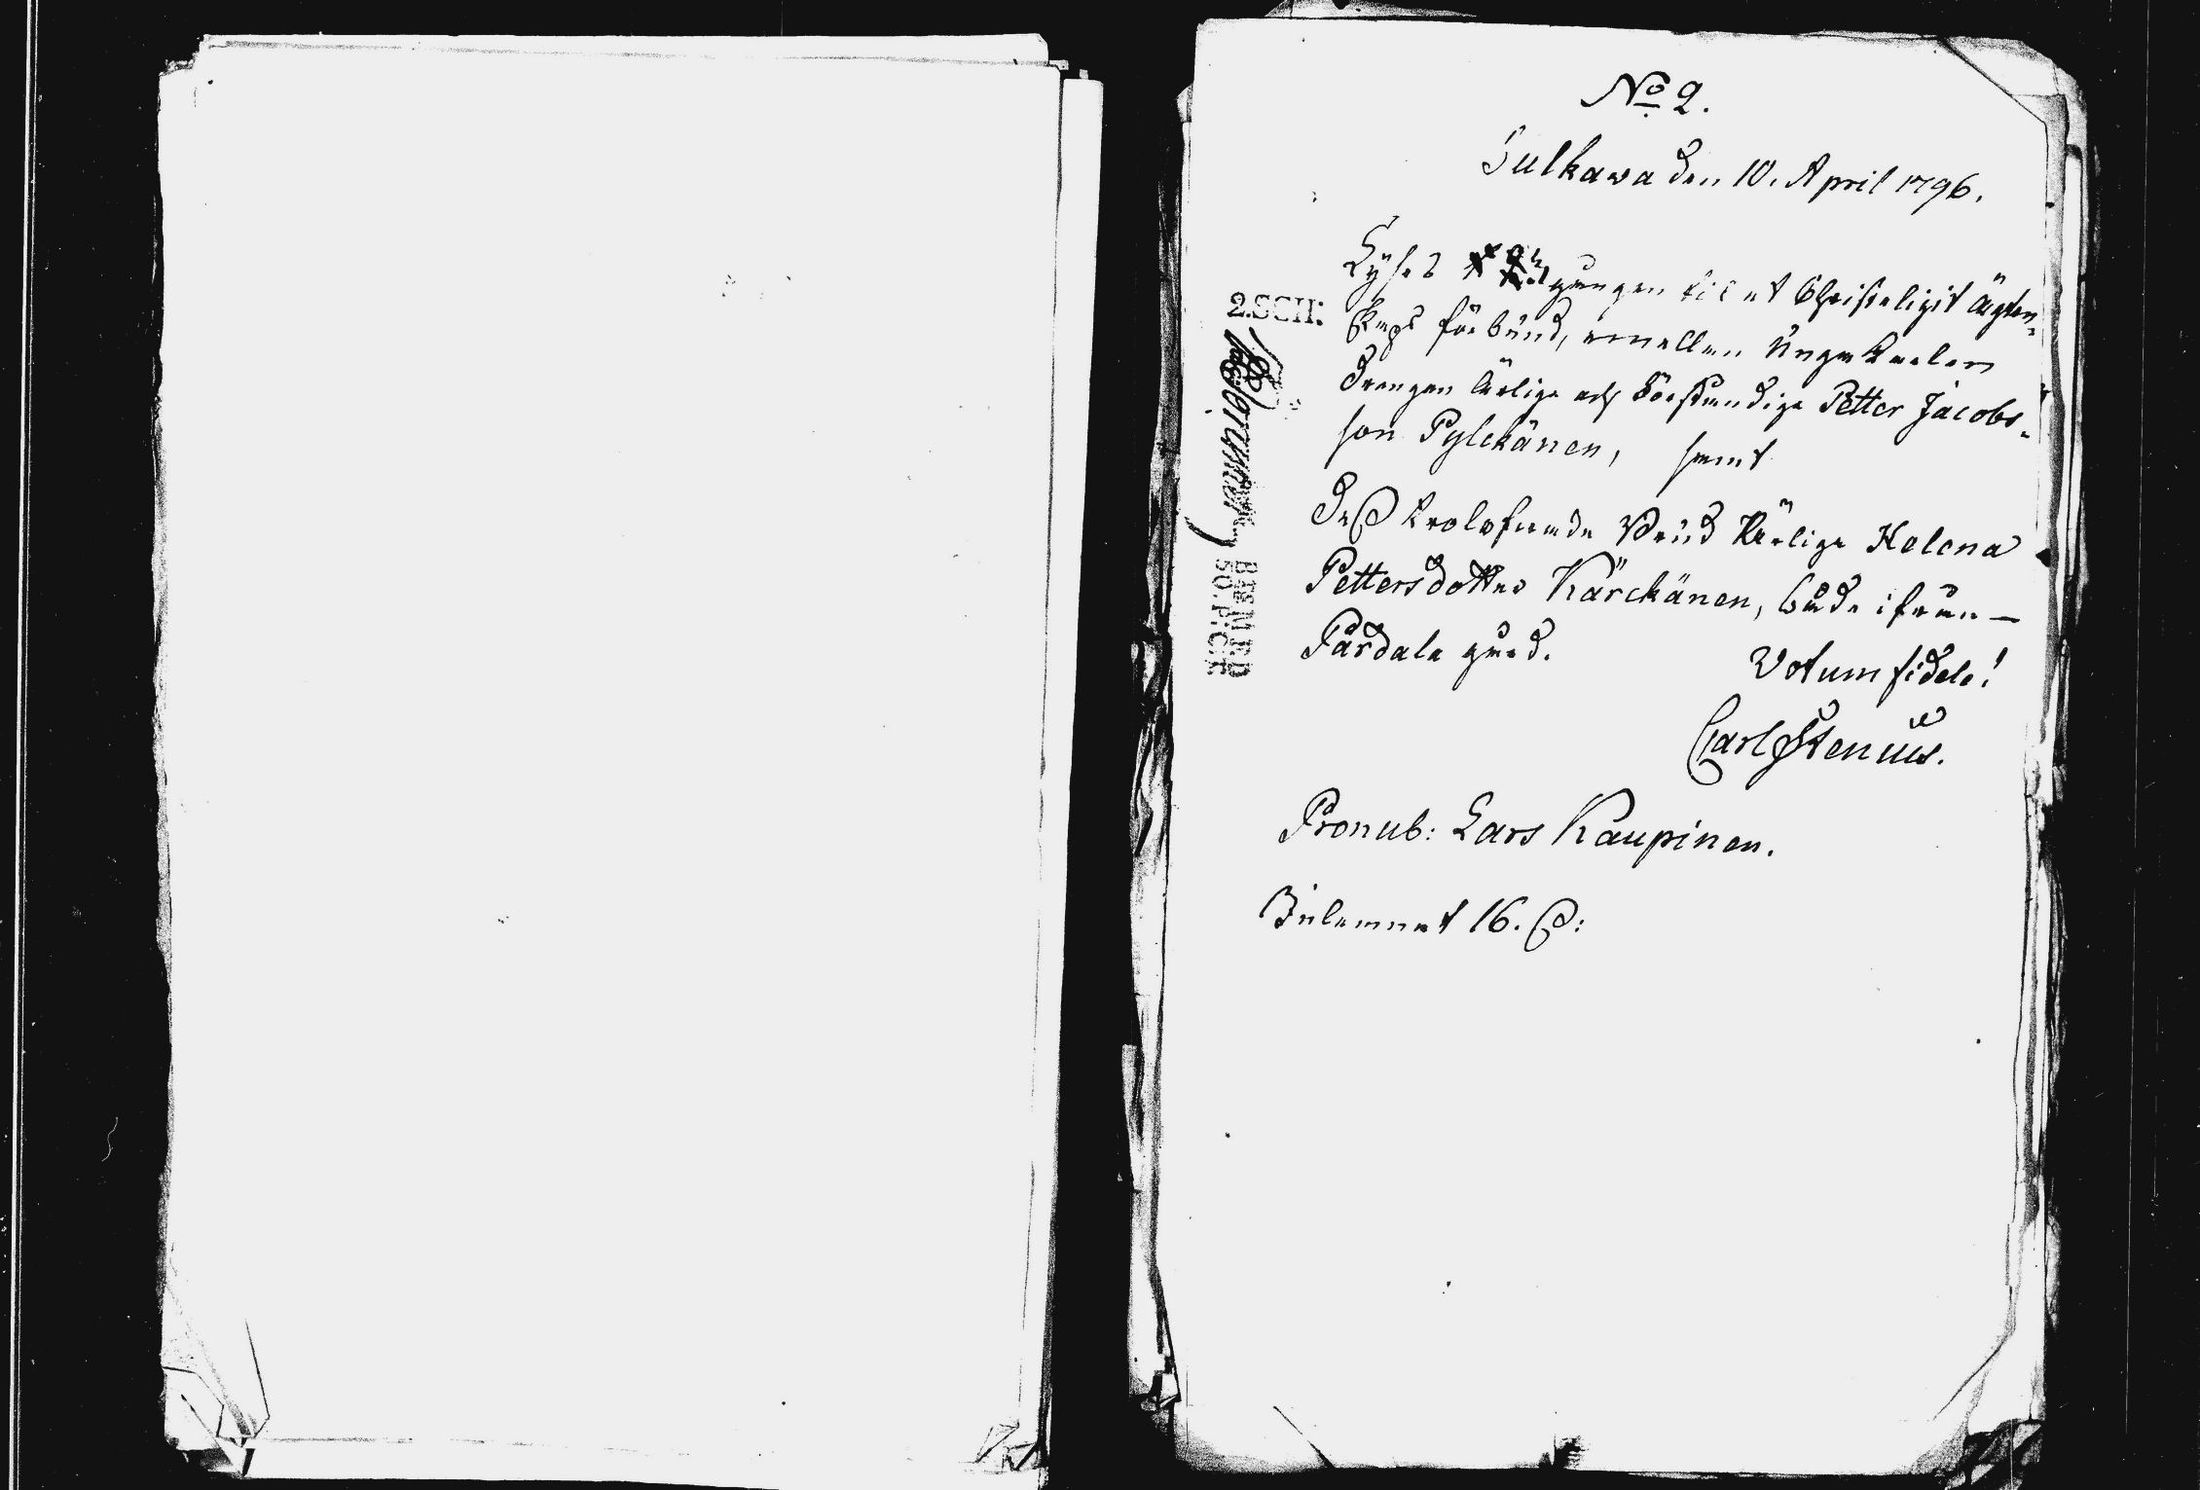 No 2.
Sulkawa den 10. April 1796.
Lyses gången til et Christeligit Ägten-
skaps förbund, emellan Unga Karlen
Drengen Ärlige och Förståndige Petter Jacobs-
son Pylckänen, samt
Dess trolofvade Brud Ärliga Helena
Pettersdotter Kärckänen, både ifrån
Pardala gård.
Votum fidele!
Carl Stenius.
Pronub: Lars Kaupinen.
2.SCH: